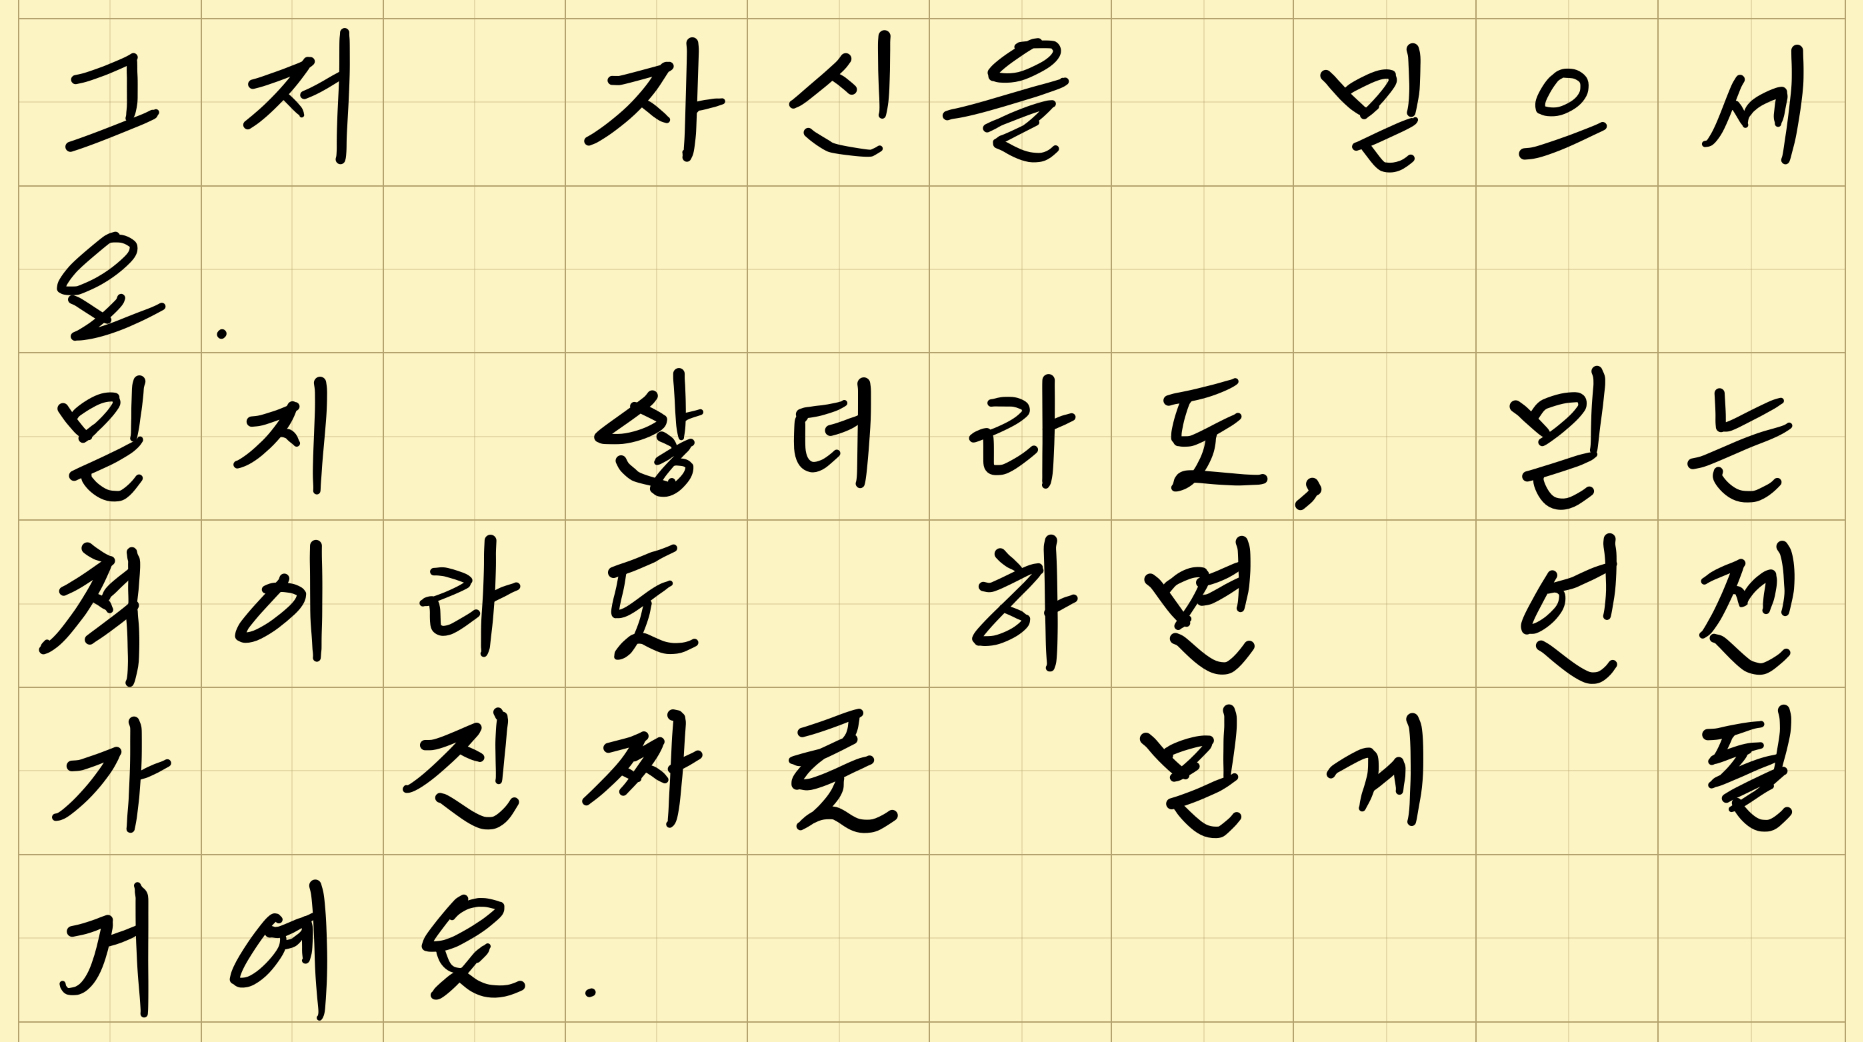 그저 자신을 믿으세
요.
믿지 않더라도, 믿는
척이라도 하면 언젠
가 진짜로 믿게 될
거예요.